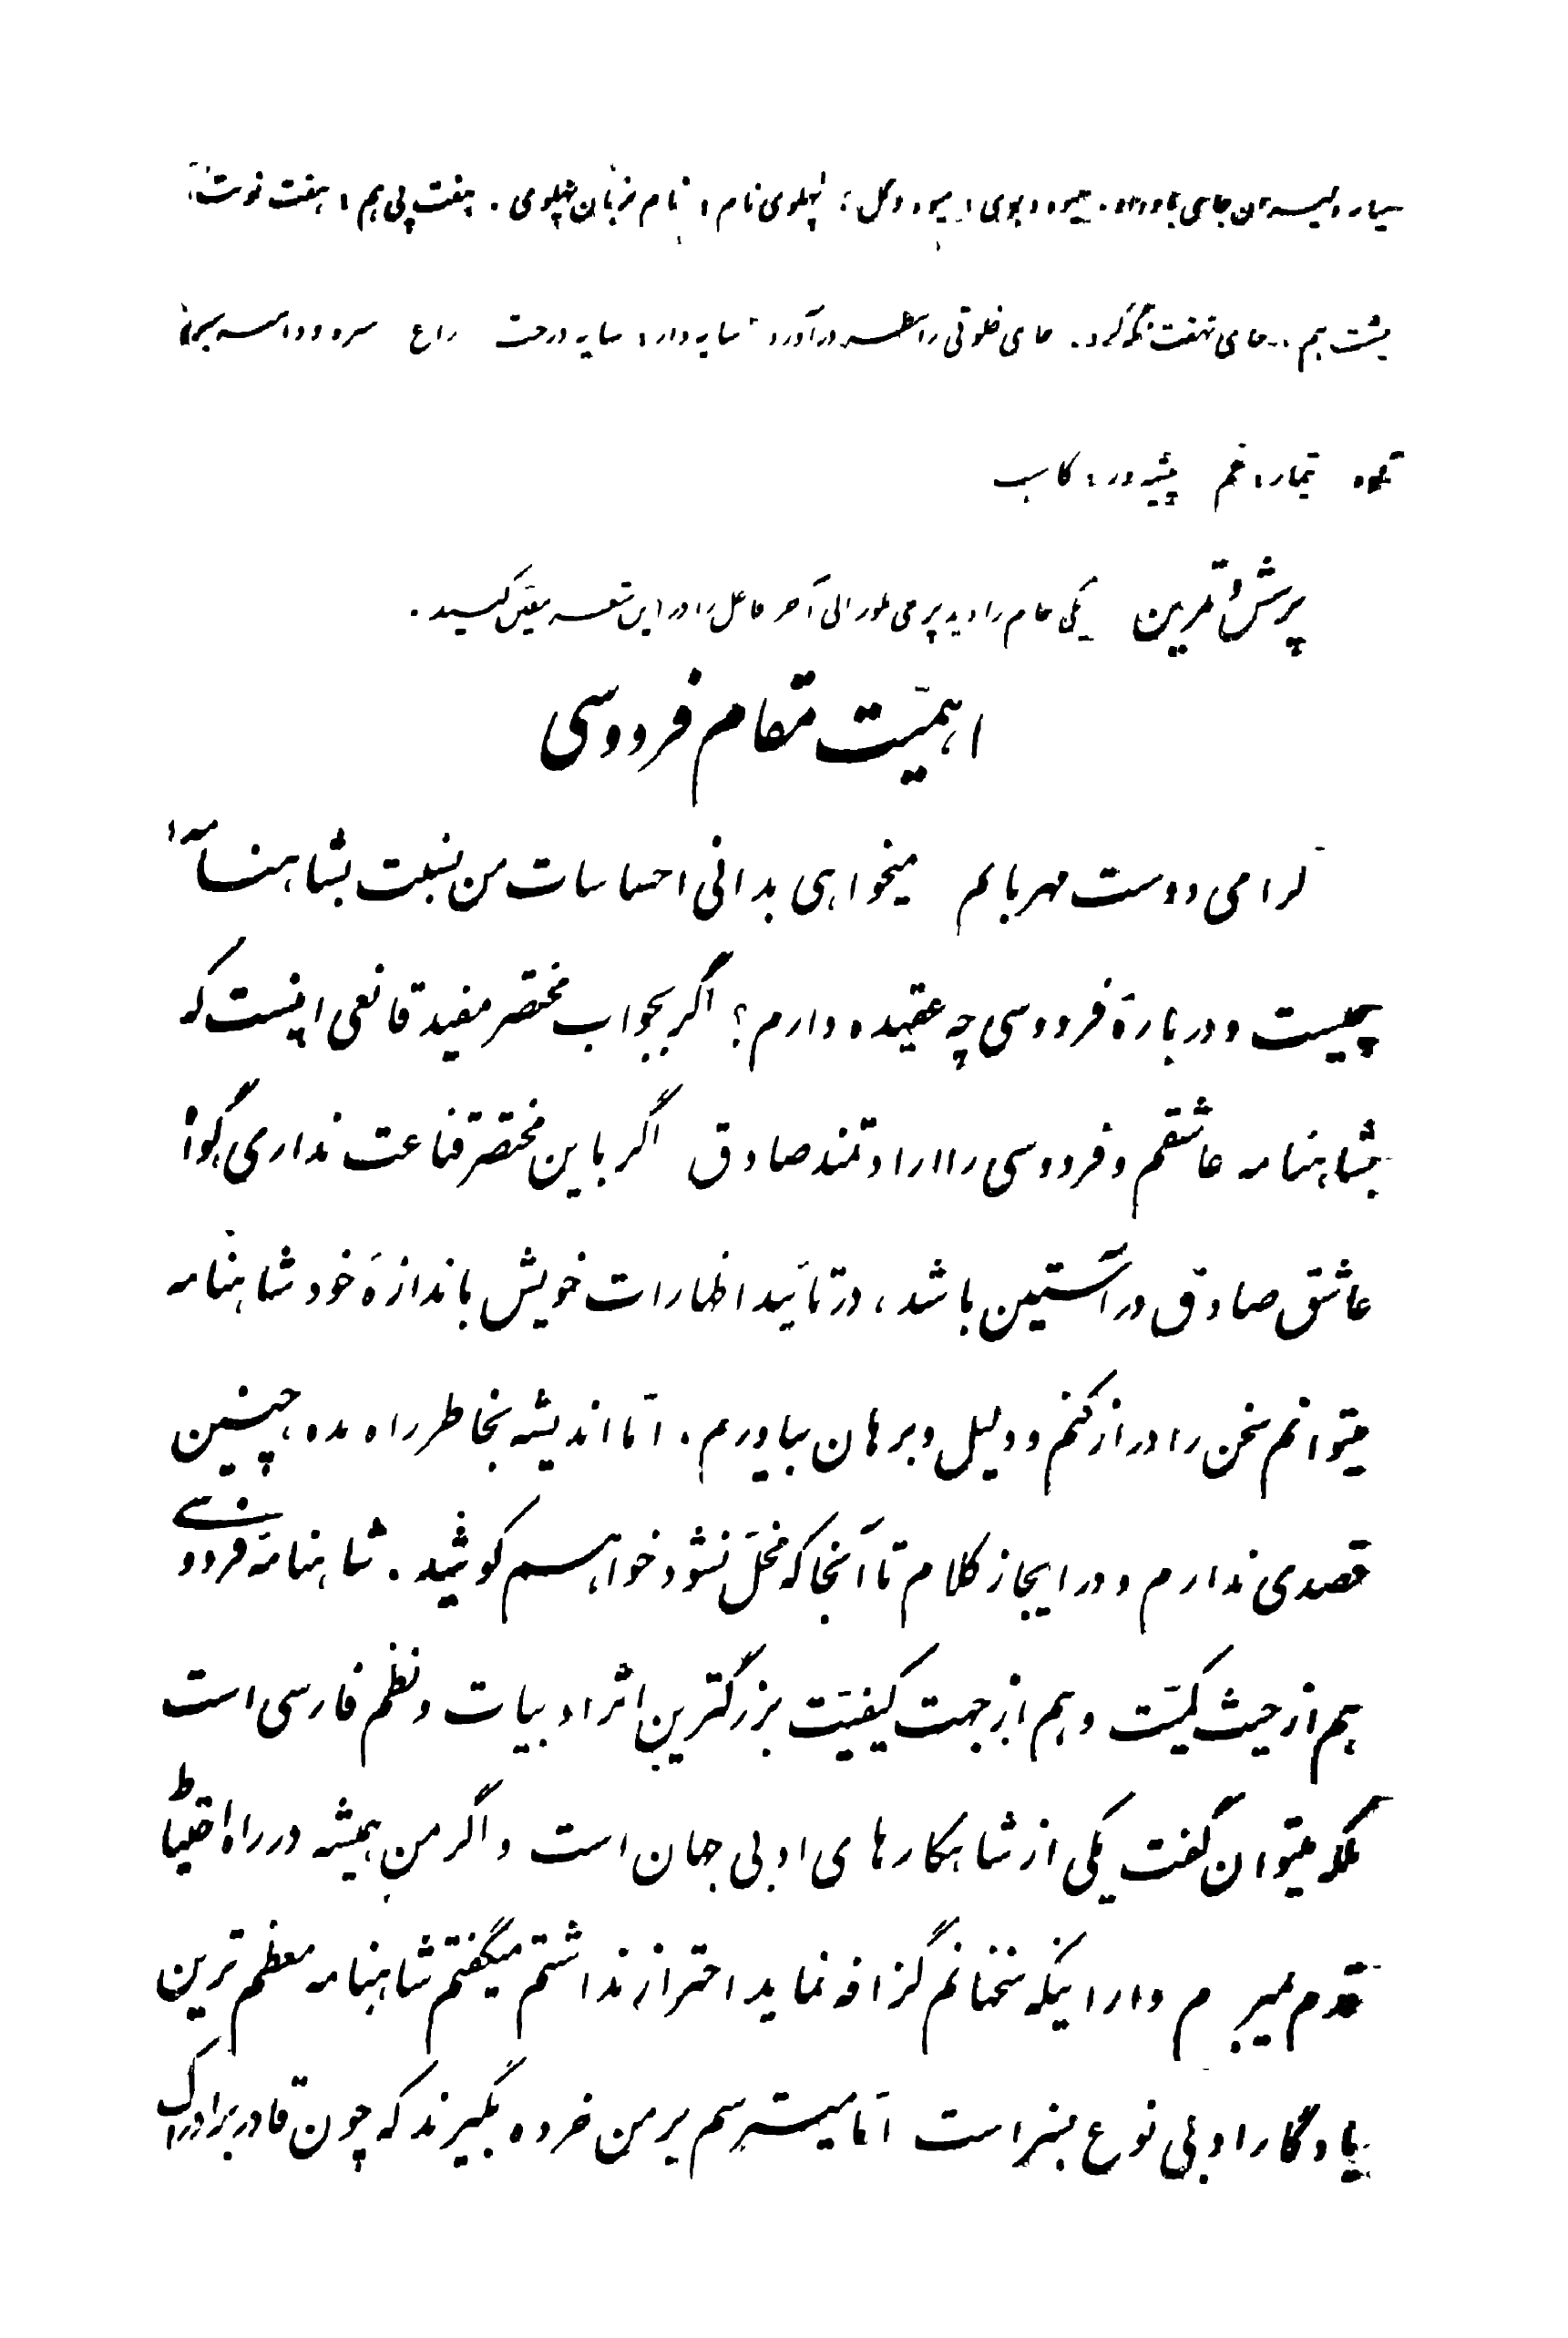 میوه و بوی: میوه و گل؛ پهلوی نام: نام زبان پهلوی. هفت پی هم: هفت نوبت
پشت هم. جای نهفت نگه کرد. جای خلوتی را بنظر درآورد سایه دار: سایه درخت راغ
میوه تیمار: غم پیشه ور: کاسب
پرسش و تمرین یکی جام را دید پر می بلور الی آخر فاعل را در این معین کنید.
اهمیّت مقام فردوسی
گرامی دوست مهربانم میخواهی بدانی احساسات من نسبت بشاهنامه
چیست و دربارهٔ فردوسی چه عقیده دارم؟ اگر بجواب مختصر مفید قانعی اینست که
بشاهنامه عاشقم و فردوسی را ارادتمند صادق اگر باین مختصر قناعت نداری گواه
عاشق صادق در آستین باشد، در تأیید اظهارات خویش باندازهٔ خود شاهنامه
میتوانم سخن را دراز کنم و دلیل و برهان بیاورم. امّا اندیشه بخاطر راه مده، چنین
قصدی ندارم و در ایجاز کلام تا آنجا که مخلّ نشود خواهم کوشید. شاهنامهٔ فردوسی
هم از حیث کمیّت و هم از جهت کیفیّت بزرگترین اثر ادبیات و نظم فارسی است
بلکه میتوان گفت یکی از شاهکارهای ادبی جهان است و اگر من همیشه در راه احتیاط
قدم نمیزدم و از اینکه سخنانم گزافه نماید احتراز نداشتم میگفتم شاهنامه معظم ترین
یادگار ادبی نوع بشر است امّا میترسم بر من خرده بگیرند که چون قادر بر ادراک